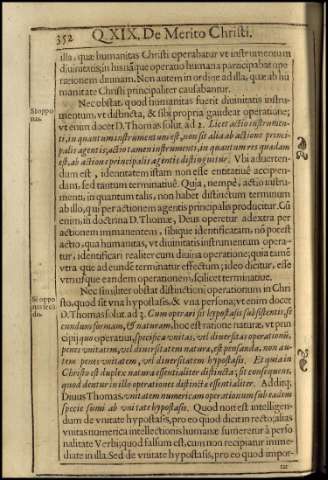 352 Q. XIX. De Merito Christi.
illa, quæ humanitas Christi operabatur vt instrumentum
diuinitatis; in his enim que operatio humana participabat ope
rationem diuinam. Non autem in ordine ad illa, quæ ab hu
manitate Christi principaliter causabantur.
Nec obstat, quod humanitas fuerit diuinitatis instru-
mentum, vt distincta, & sibi propria gaudeat operatione;
vt enim docet D. Thomas solut. ad 2. Licet actio instrumen-
ti, in quantum instrumentum est, non sit alia ab actione princi-
palis agentis; actio tamen instrumenti, in quantum res quædam
est, ab actione principalis agentis distinguitur. Vbi aduerten-
dum est, idenntatem istam non esse entitatiuè accipien-
dam, sed tantum terminatiuè. Quia, nempè, actio instru-
menti, in quantum talis, non habet distinctum terminum
ab illo, qui per actionem agentis principalis producitur. Cũ
enim, in doctrina D. Thomæ, Deus operetur ad extra per
actionem immanentem, sibique identificatam, nõ potest
actio, qua humanitas, vt diuinitatis instrumentum opera-
tur, identificari realiter cum diuina operatione; quia tamẽ
vtra que ad eundẽ terminatur effectum; ideo dicitur, esse
vtriusque eandem operationem, scilicet terminatiuè.
Nec similiter obstat distinctioni operationum in Chri
sto, quod sit vna hypostasis, & vna persona; vt enim docet
D. Thomas solut. ad 3. Cum operari sit hypostasis subsistentis, si
cundum formam, & naturam, hoc est ratione naturæ, vt prin
cipij quo operatur, specifica vnitas, vel diuersitas operationis,
penes vnitatem, vel diuersitatem naturæ, est pensanda, non au-
tem penes vnitatem, vel diuersitatem hypostasis. Et quia in
Christo est duplex natura essentialiter distincta; sit consequens,
quod dentur in illo operationes distinctæ essentialiter. Additq;
Diuus Thomas, vnitatem numericam operationum sub eadem
specie sumi ab vnitate hypostasis. Quod non est intelligen-
dum de vnitate hypostasis, pro eo quod dicit in recto; alias
vnitas numerica intellectionis humanæ sumeretur à perso
nalitate Verbi; quod falsum est, cum non recipiatur imme-
diate in illa. Sed de vnitate hypostasis, pro eo quod impor-
tat